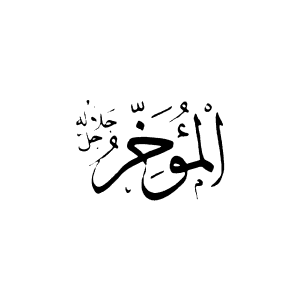 الْمُؤَخِّرُ
جَلَّ جَلَالُهُ